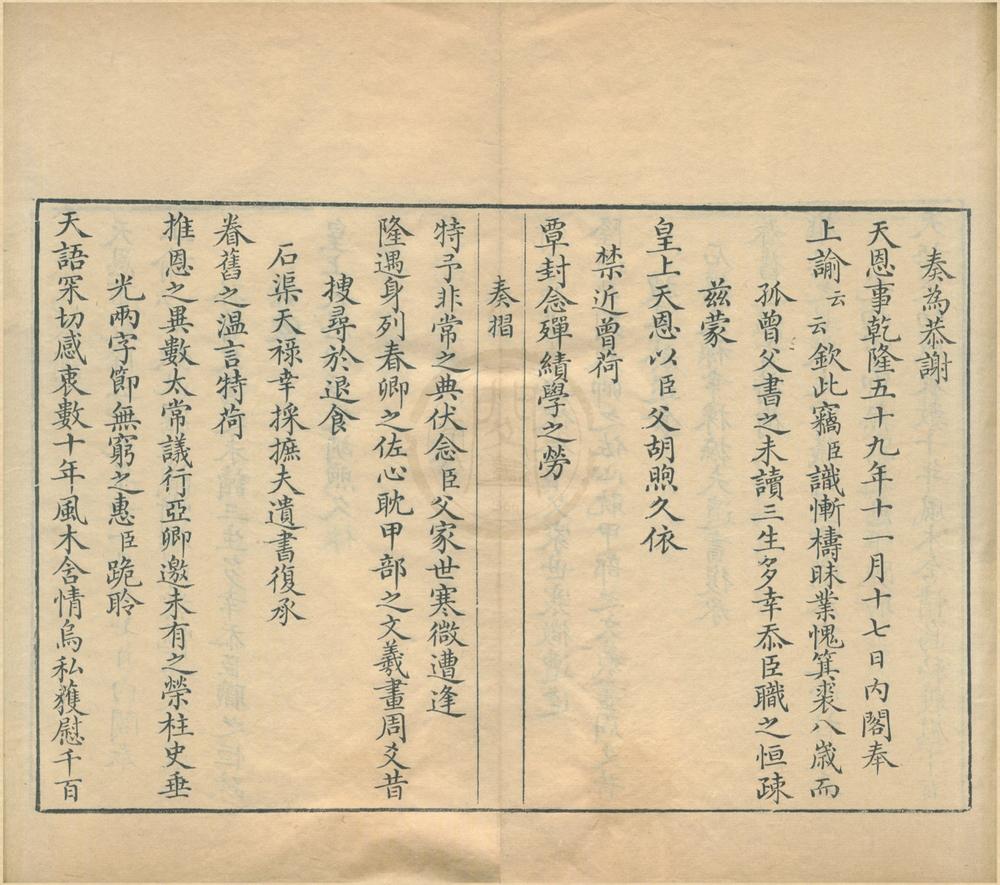 奏為恭謝
天恩事乾隆五十九年十一月十七日內閣奉
上諭云云欽此竊臣識慚檮昧業愧箕裘八歲而
孤曾父書之未讀三生多幸忝臣職之恒疎
茲蒙
皇上天恩以臣父胡煦久依
禁近曾荷
覃封念殫績學之勞
奏摺
特予非常之典伏念臣父家世寒微遭逢
隆遇身列春卿之佐心耽甲部之文羲畫周爻昔
搜尋於退食
石渠天祿幸採摭夫遺書復承
眷舊之溫言特荷
推恩之異數太常議行亞卿邀未有之榮柱史垂
光兩字節無窮之惠臣跪聆
天語罙切感衷數十年風木含情烏私獲慰千百